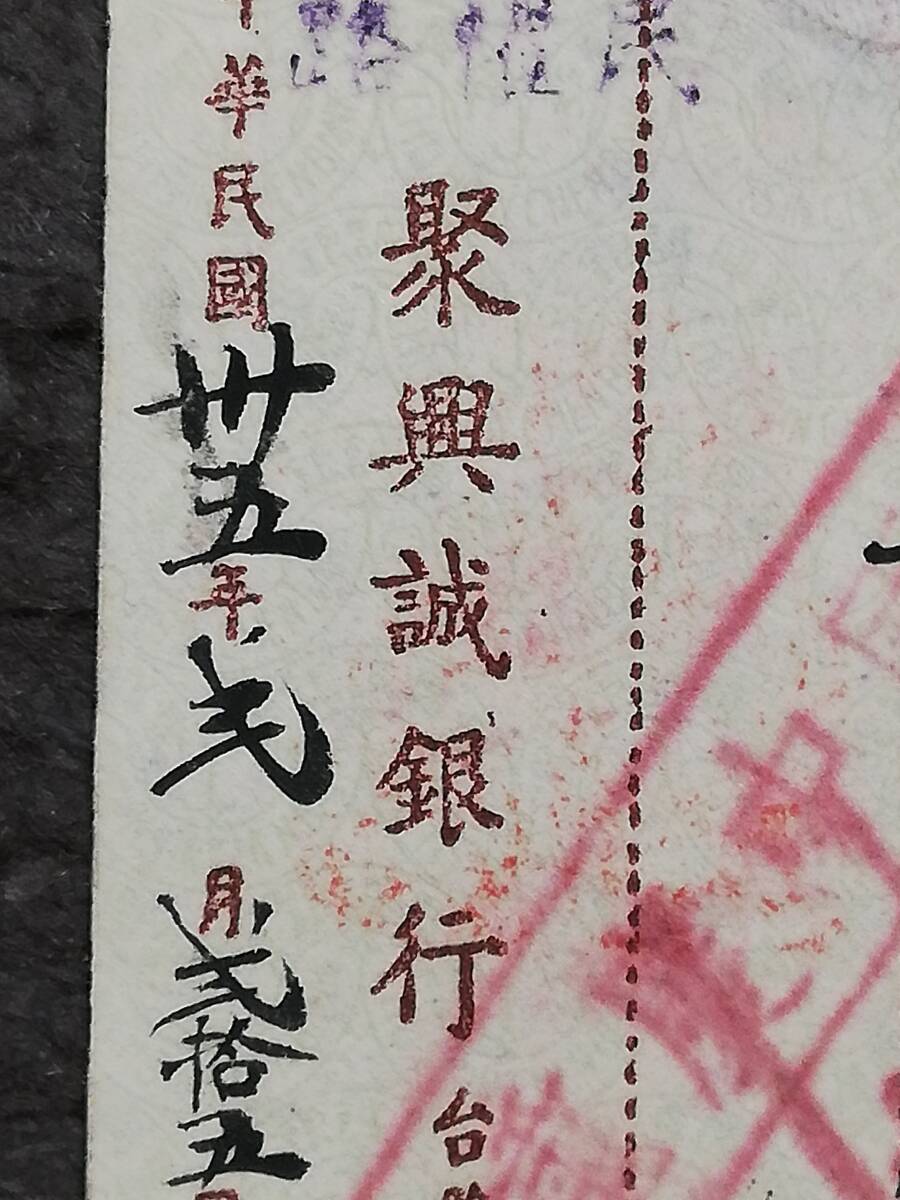 民權路
聚興誠銀行台
華民國卅五年弍月弍拾五